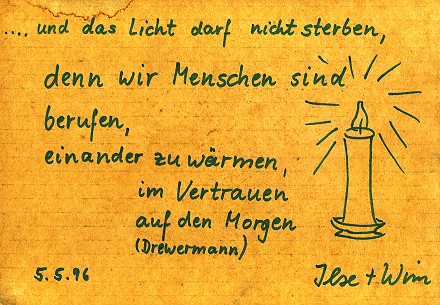 ...., und das Licht darf nicht sterben,
denn wir Menschen sind
berufen,
einander zu wärmen,
im Vertrauen
auf den Morgen
(Drewermann)
5.5.96 Ilse + Wim